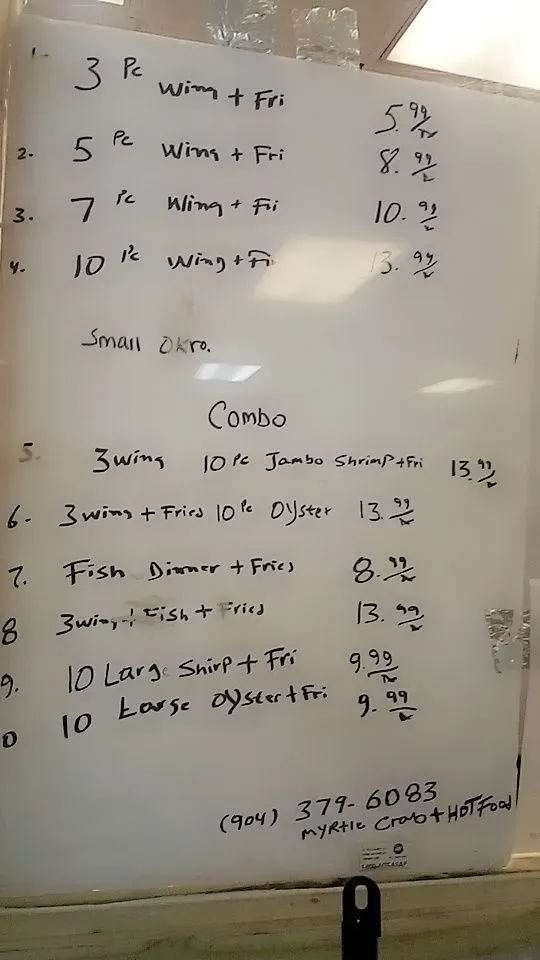 1. 3 Pc Wing + Fri 5.99
2. 5 Pc Wing + Fri 8.99
3. 7 Pc Wing + Fri 10.99
4. 10 Pc Wing + Fri 13.99
Small Okro.
Combo
5. 3 wing 10 Pc Jambo Shrimp + Fri 13.99
6. 3 wing + Fries 10 Pc Oyster 13.99
7. Fish Dinner + Fries 8.99
8 3 wing + Fish + Fries 13.99
9. 10 Large Shirp + Fri 9.99
0 10 Large Oyster + Fri 9.99
(904) 379-6083
Myrtle Crab + HOT Food